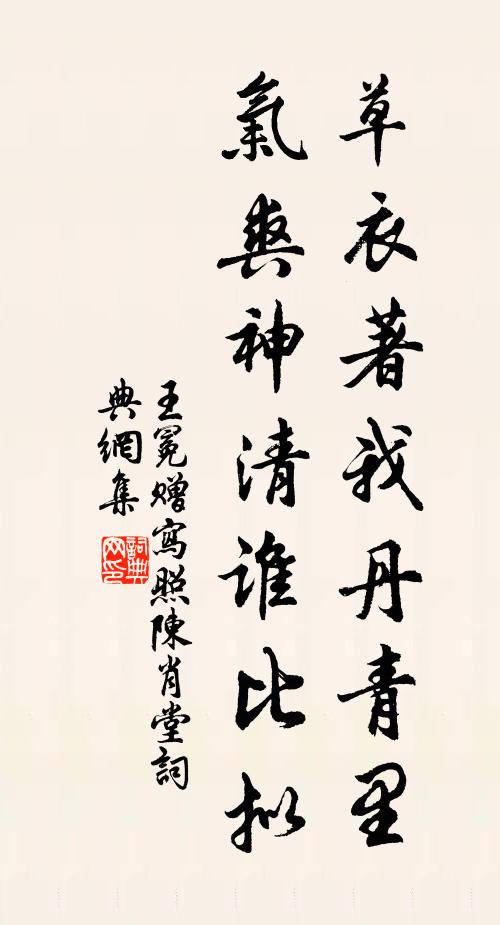 草衣著我丹青里
氣爽神清誰比拟
王冕赠寫照陳肖堂詞
典網集
詞典网印